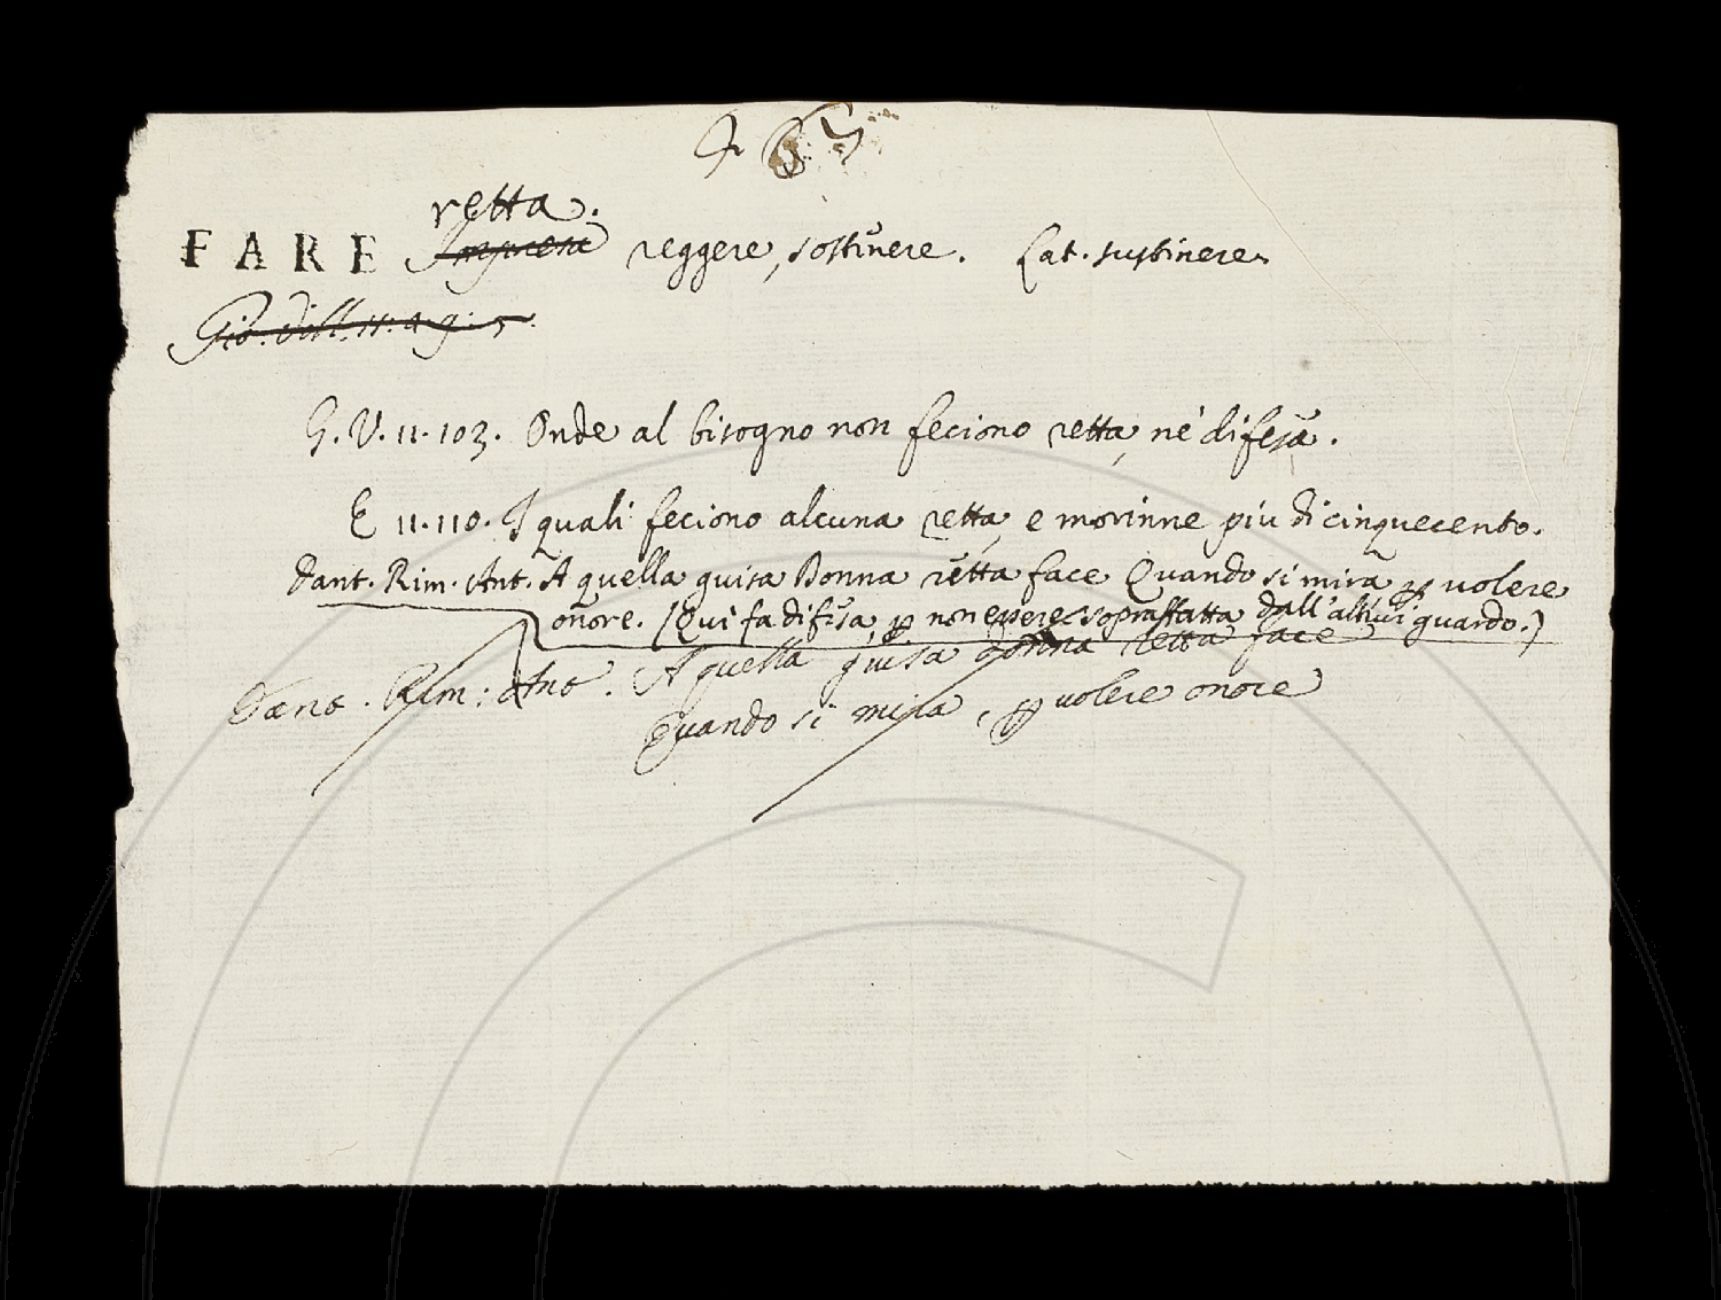 retta.
FARE reggere, sostenere. Lat. sustinere
G. V. 11. 103. Onde al bisogno non feciono retta, nè difesa.
E 11. 110. I quali feciono alcuna retta, e morinne piu di cinquecento.
Dant. Rim. Ant. A quella guisa Donna retta face Quando si mira ꝑ volere
onore. (Qui fa difesa, ꝑ non essere sopraffatta dall'altrui guardo.)
Dant. Rim: Ant. A quella guisa donna retta face
Quando si mira, ꝑ volere onore